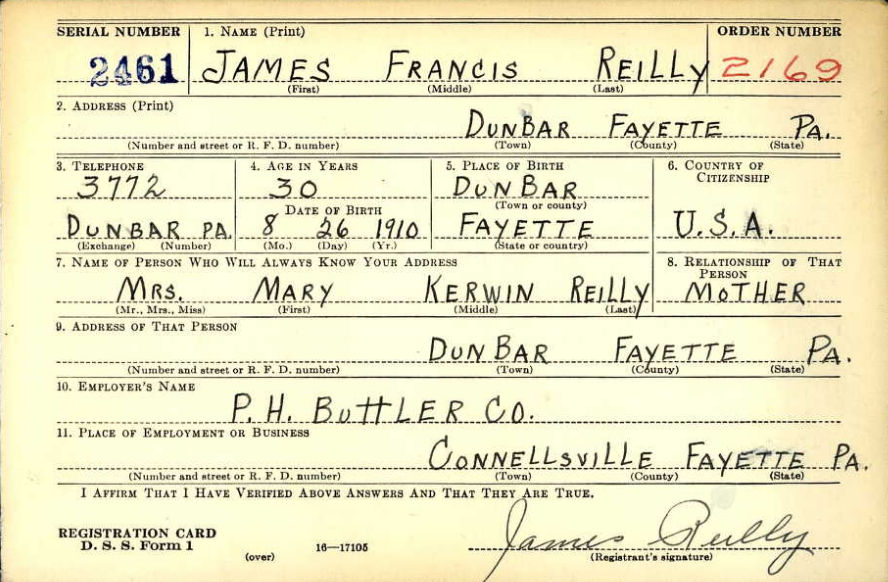 SERIAL NUMBER 1. NAME (Print) ORDER NUMBER
2461 JAMES FRANCIS REILLY 2169
(First) (Middle) (Last)
2. ADDRESS (Print)
DUNBAR FAYETTE PA.
(Number and street or R. F. D. number) (Town) (County) (State)
3. TELEPHONE 4. AGE IN YEARS 5. PLACE OF BIRTH 6. COUNTRY OF CITIZENSHIP
3772 30 DUNBAR
(Town or county)
DATE OF BIRTH
DUNBAR PA. 8 26 1910 FAYETTE U.S.A.
(Exchange) (Number) (Mo.) (Day) (Yr.) (State or country)
7. NAME OF PERSON WHO WILL ALWAYS KNOW YOUR ADDRESS 8. RELATIONSHIP OF THAT PERSON
MRS. MARY KERWIN REILLY MOTHER
(Mr., Mrs., Miss) (First) (Middle) (Last)
9. ADDRESS OF THAT PERSON
DUNBAR FAYETTE PA.
(Number and street or R. F. D. number) (Town) (County) (State)
10. EMPLOYER'S NAME
P. H. BUTTLER CO.
11. PLACE OF EMPLOYMENT OR BUSINESS
CONNELLSVILLE FAYETTE PA.
(Number and street or R. F. D. number) (Town) (County) (State)
I AFFIRM THAT I HAVE VERIFIED ABOVE ANSWERS AND THAT THEY ARE TRUE.
James Reilly
REGISTRATION CARD
D. S. S. Form 1
(over) 16—17105 (Registrant's signature)